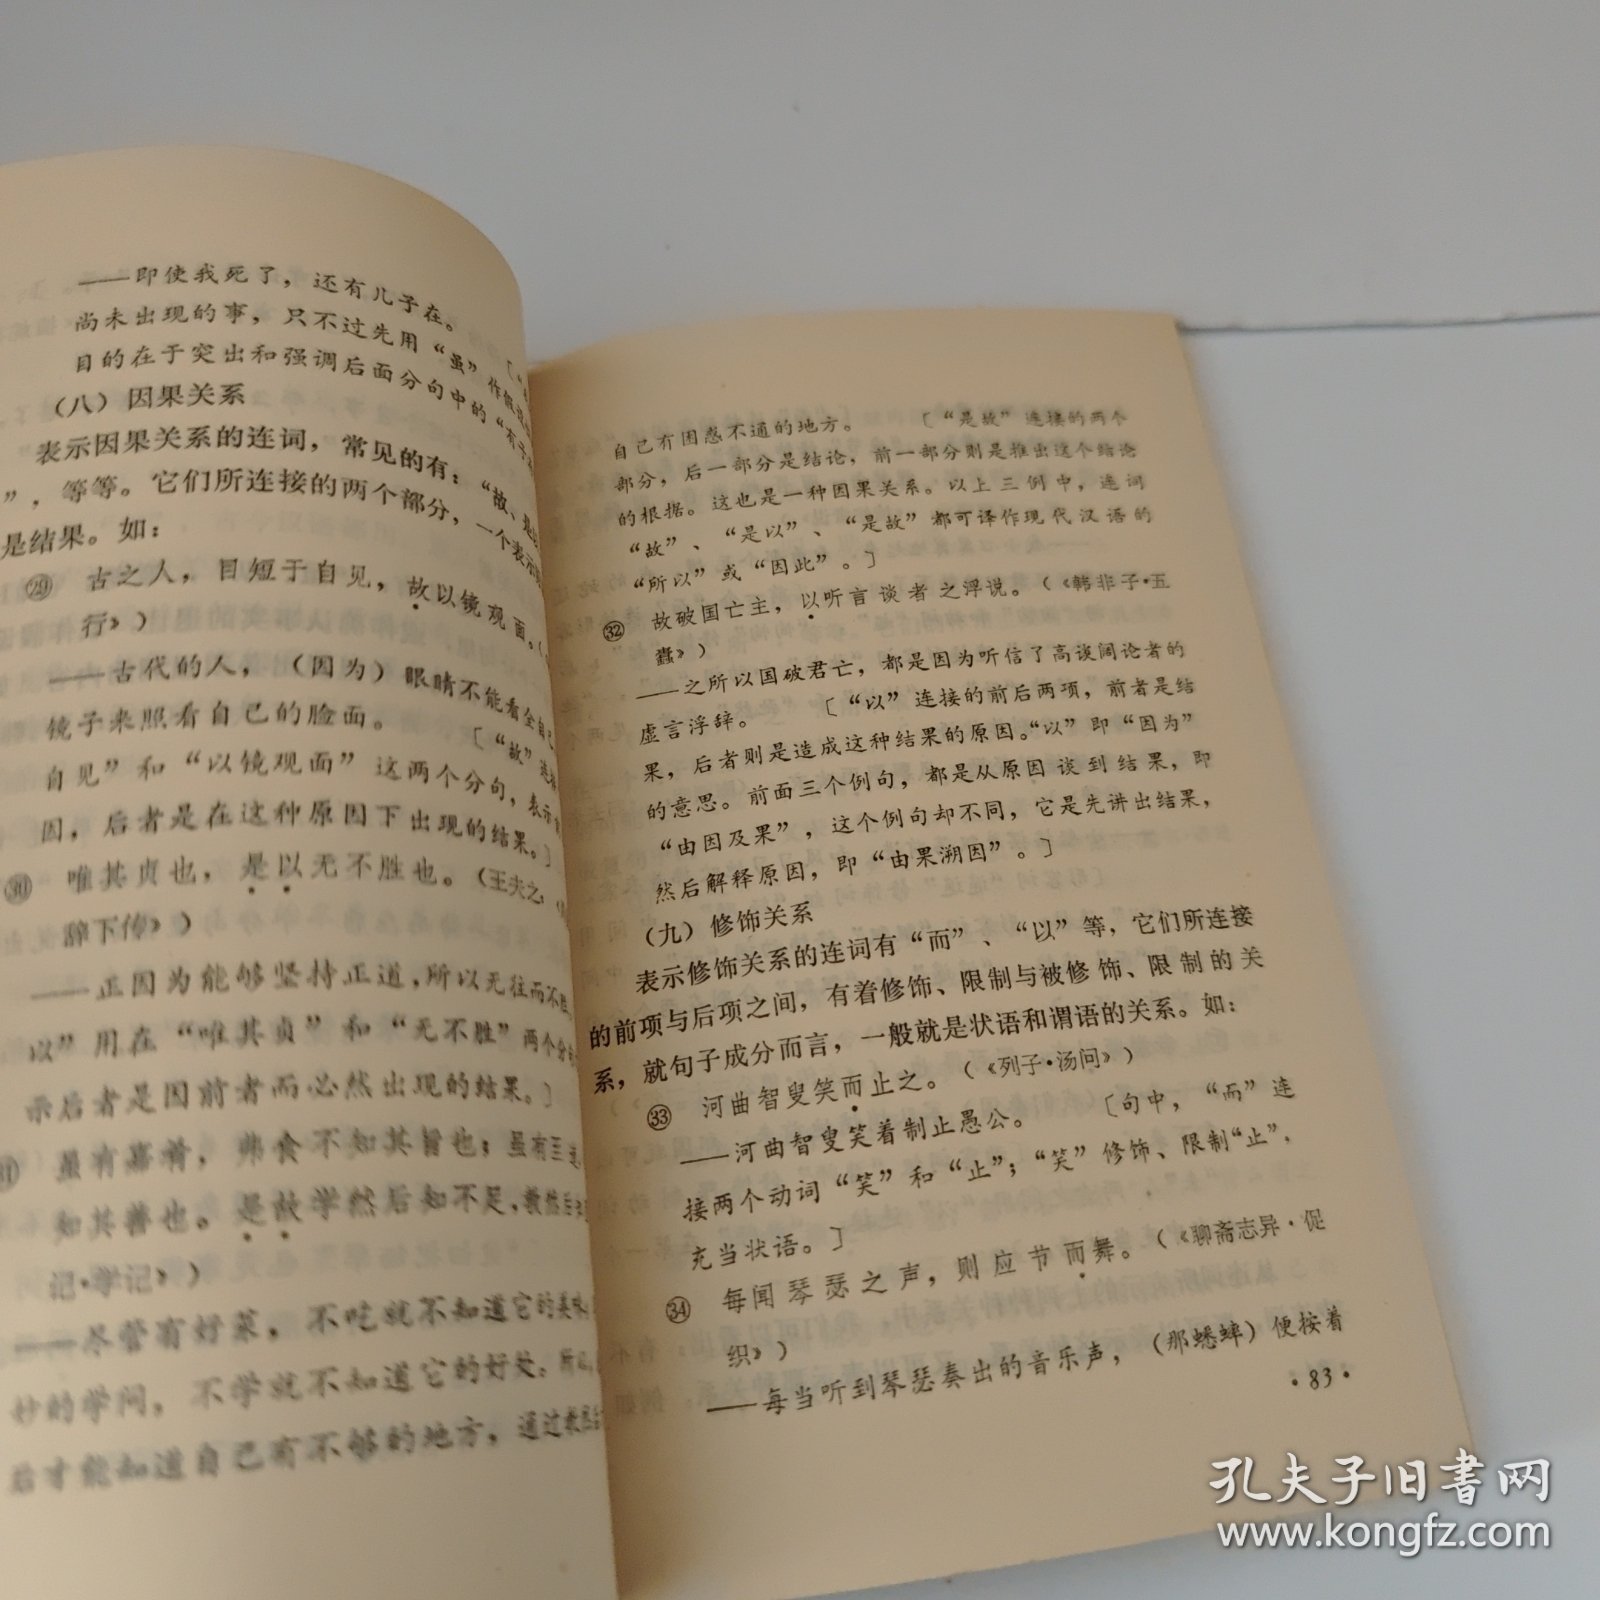 ——即使我死了，还有儿子在。
尚未出现的事，只不过先用“虽”作假设
目的在于突出和强调后面分句中的“有子
（八）因果关系
表示因果关系的连词，常见的有：“故、是
”，等等。它们所连接的两个部分，一个表示
是结果。如：
㉙ 古之人，目短于自见，故以镜观面。（
行》）
——古代的人，（因为）眼睛不能看全自己
镜子来照看自己的脸面。 〔“故”连接
自见”和“以镜观面”这两个分句，表示前
因，后者是在这种原因下出现的结果。〕
㉚ 唯其贞也，是以无不胜也。（王夫之：《
辞下传》）
——正因为能够坚持正道，所以无往而不胜
以”用在“唯其贞”和“无不胜”两个分
示后者是因前者而必然出现的结果。〕
虽有嘉肴，弗食不知其旨也；虽有至道
知其善也。是故学然后知不足，教然后
记·学记》）
——尽管有好菜，不吃就不知道它的美味
妙的学问，不学就不知道它的好处。所以
后才能知道自己有不够的地方，通过教
自己有困惑不通的地方。 〔“是故”连接的两个
部分，后一部分是结论，前一部分则是推出这个结论
的根据。这也是一种因果关系。以上三例中，连词
“故”、“是以”、“是故”都可译作现代汉语的
“所以”或“因此”。〕
㉜ 故破国亡主，以听言谈者之浮说。（《韩非子·五
蠹》）
——之所以国破君亡，都是因为听信了高谈阔论者的
虚言浮辞。 〔“以”连接的前后两项，前者是结
果，后者则是造成这种结果的原因。“以”即“因为”
的意思。前面三个例句，都是从原因谈到结果，即
“由因及果”，这个例句却不同，它是先讲出结果，
然后解释原因，即“由果溯因”。〕
（九）修饰关系
表示修饰关系的连词有“而”、“以”等，它们所连接
的前项与后项之间，有着修饰、限制与被修饰、限制的关
系，就句子成分而言，一般就是状语和谓语的关系。如：
㉝ 河曲智叟笑而止之。（《列子·汤问》）
——河曲智叟笑着制止愚公。 〔句中，“而”连
接两个动词“笑”和“止”；“笑”修饰、限制“止”，
充当状语。〕
㉞ 每闻琴瑟之声，则应节而舞。（《聊斋志异·促
织》）
——每当听到琴瑟奏出的音乐声，（那蟋蟀）便按着
·83·
孔夫子旧书网
www.kongfz.com